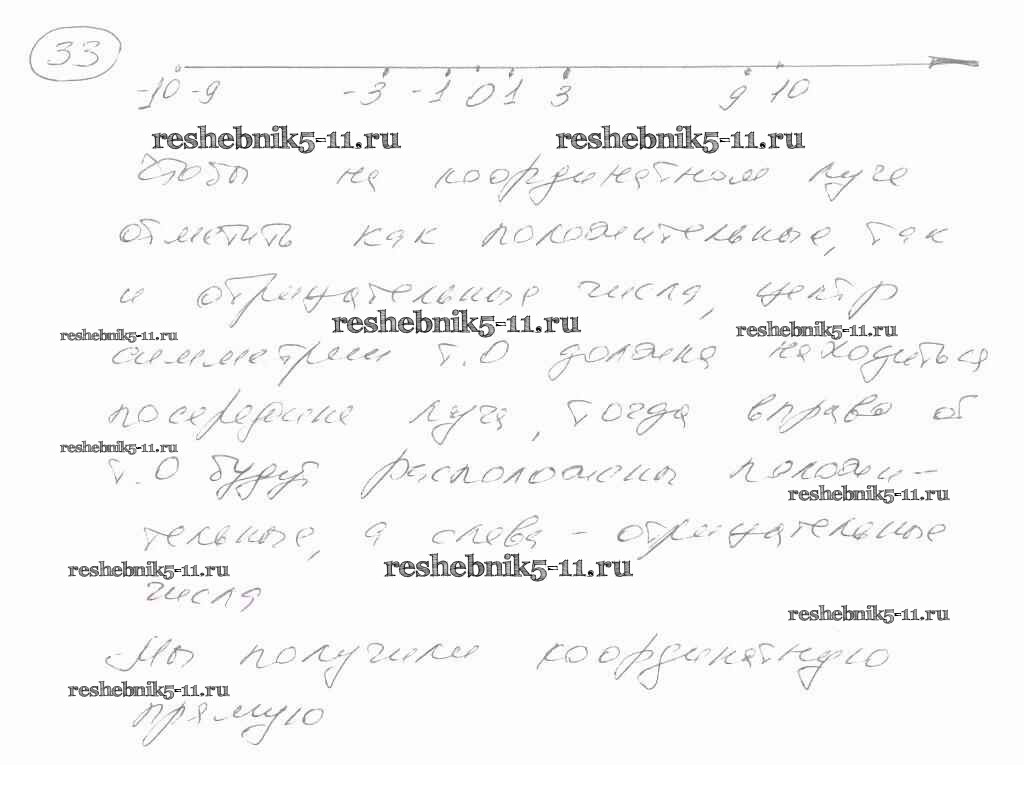 33
-10 -9 -3 -1 0 1 3 9 10
reshebnik5-11.ru reshebnik5-11.ru
Чтобы на координатном луче
отметить как положительные, так
и отрицательные числа, центр
reshebnik5-11.ru reshebnik5-11.ru reshebnik5-11.ru
симметрии т.О должна находиться
посередине луча, тогда вправо от
reshebnik5-11.ru
т.О будут расположены положи-
reshebnik5-11.ru
тельные, а слева - отрицательные
reshebnik5-11.ru reshebnik5-11.ru
числа
reshebnik5-11.ru
Мы получили координатную
reshebnik5-11.ru
прямую